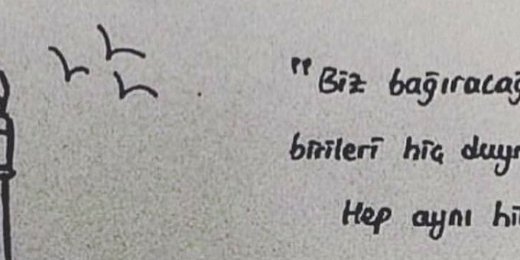 "Biz bağıracağ
birileri hiç duym
Hep aynı hi